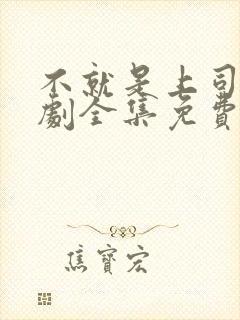 不就是上司
劇全集免費
焦寶宏